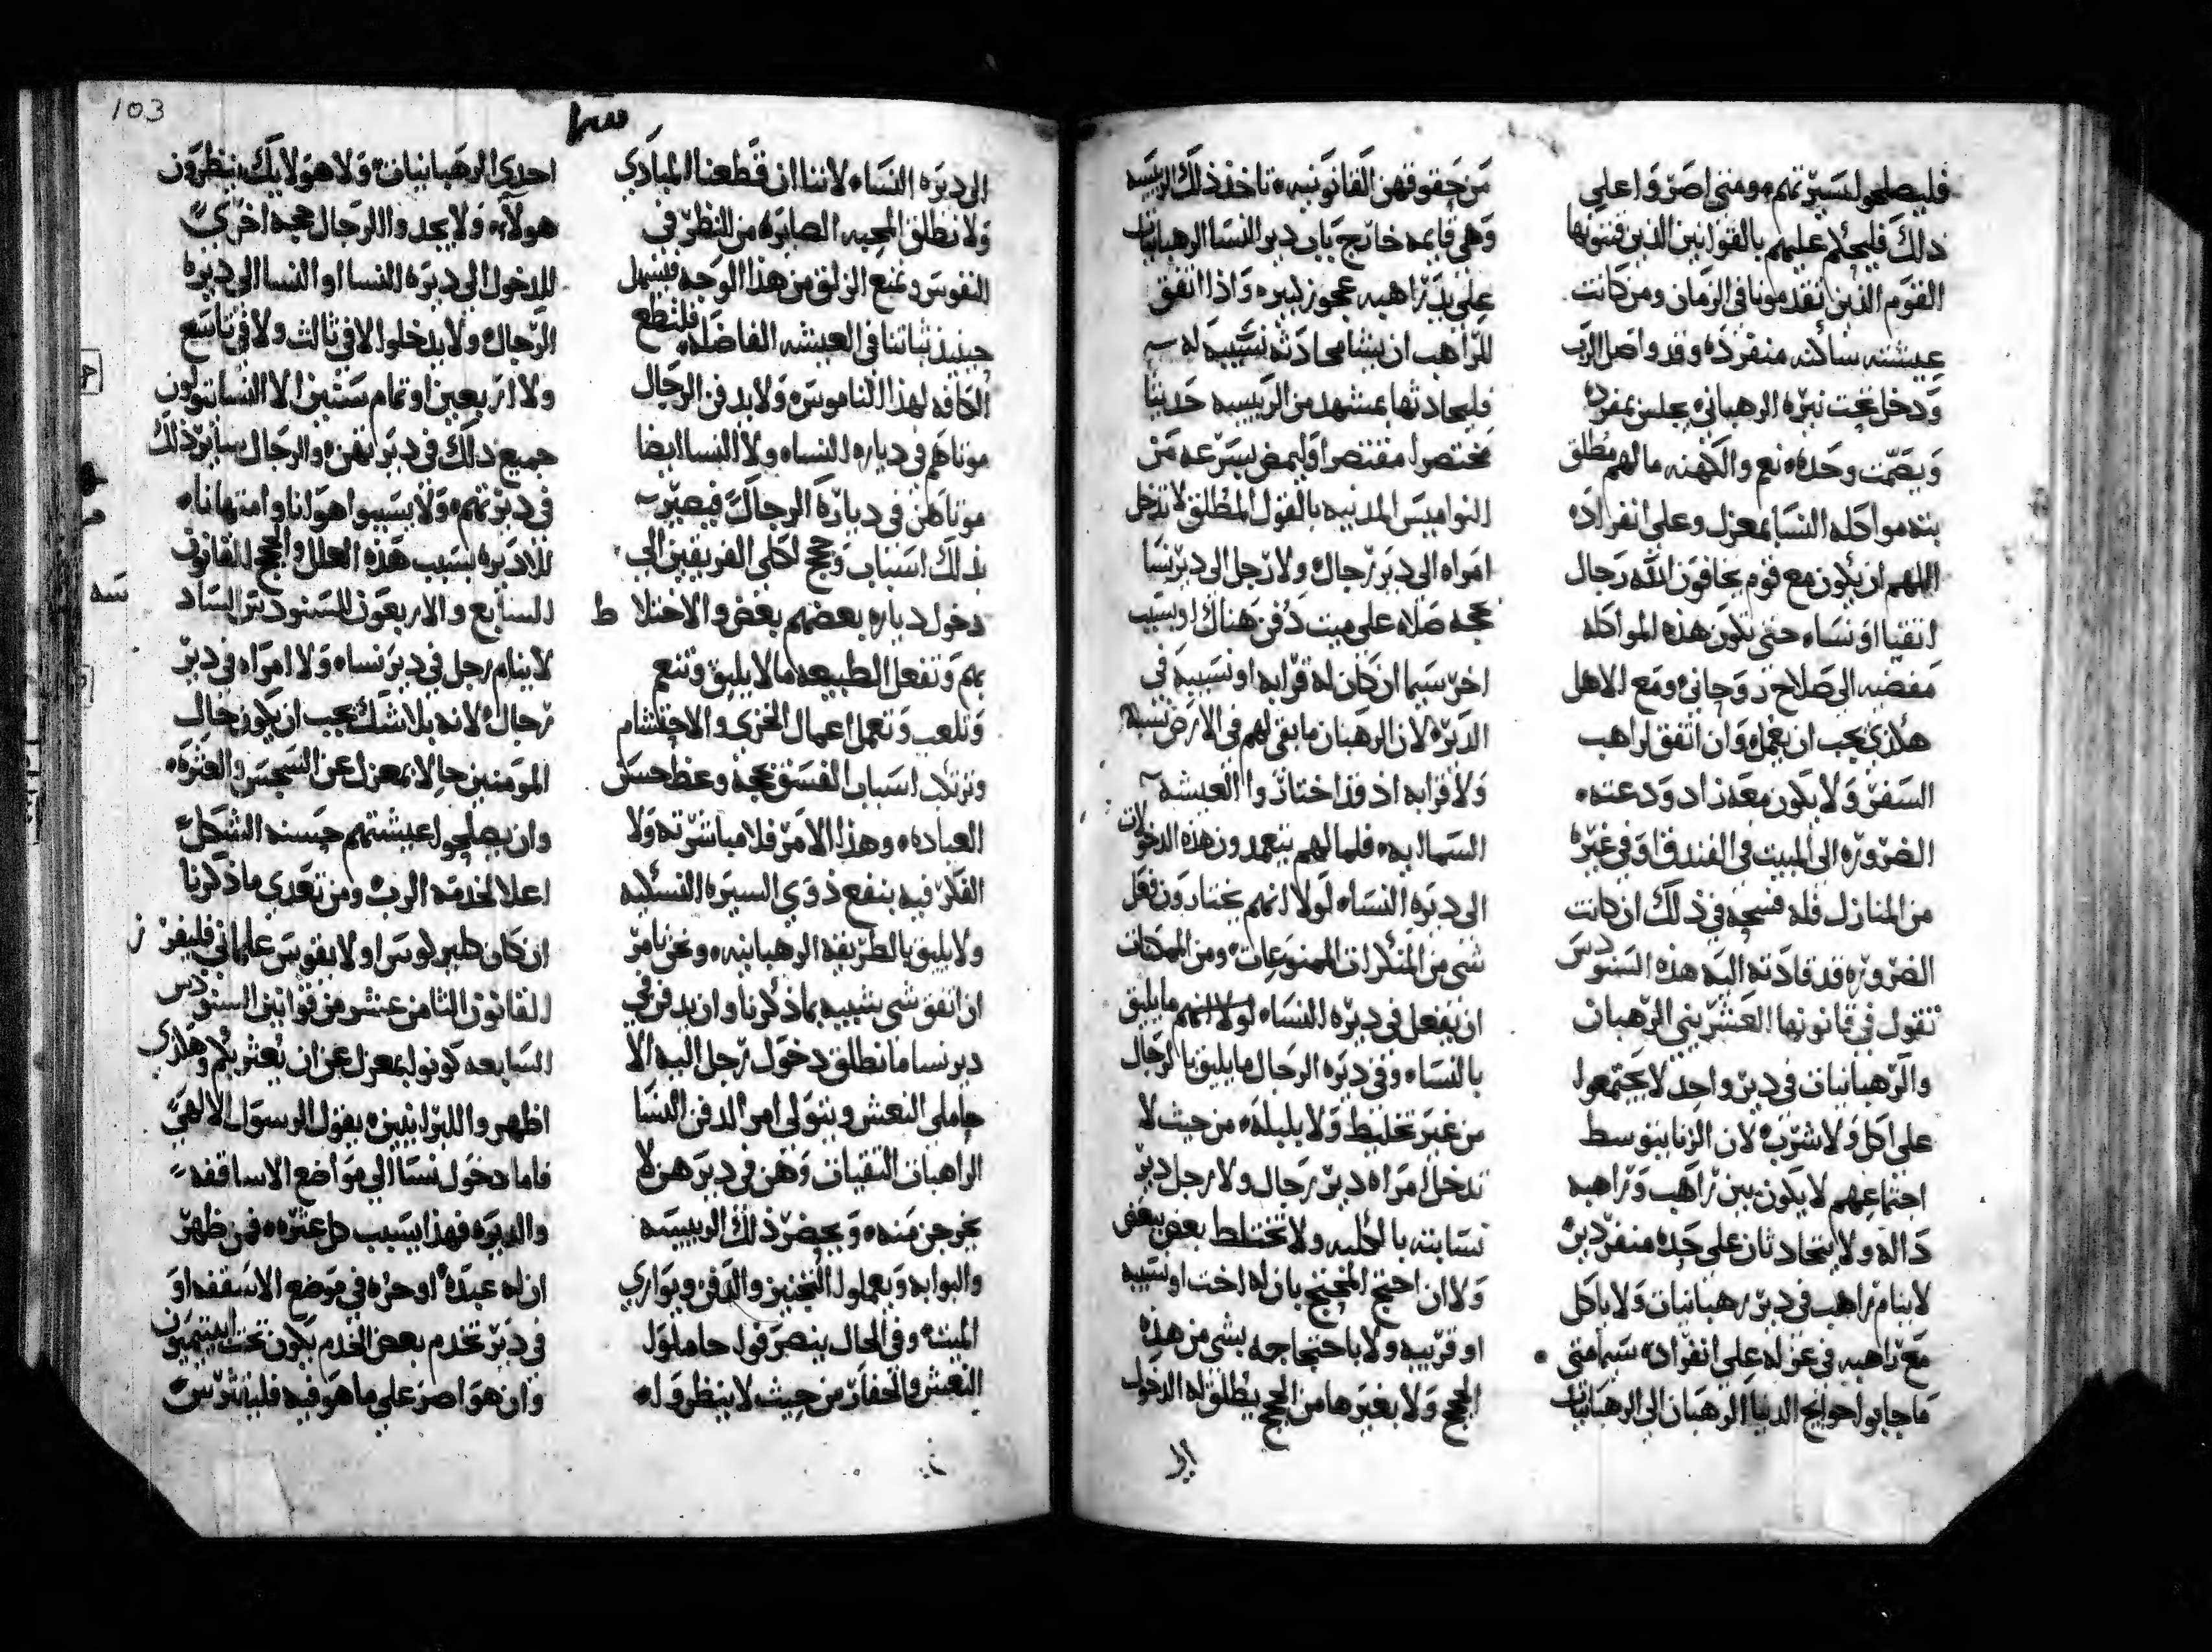 فليصلحوا لسيرتهم ومتي اصروا علي
ذلك فليحكم عليهم بالقوانين الذين قننوها
القوم الذين تقدمونا في الزمان ومن كانت
عيشته ساكنه منفرده وقد واصل الرب
ودخل تحت نيره الرهباني يجلس بمفرده
ويصمت وحده نعم والكهنه ما لهم مطلق
بته مواكله النسا بمعزل وعلي انفراده
اللهم ان يكون مع قوم يخافون الله رجال
اتقيا او نساء حتي تكون هذه المواكله
مفضيه الي صلاح روحاني ومع الاهل
هكذي يجب ان يعمل وان اتفق لراهب
السفر ولا يكون معه زاد ودعته
الضروره الي المبيت في الفندق او في غيره
من المنازل فله فسحه في ذلك ان كانت
الضروره قد قادته اليه هذه السنودس
تقول في قانونها العشريني الرهبان
والرهبانيات في دير واحد لا يجتمعوا
علي اكل ولا شرب لان الزنا يتوسط
اجتماعهم لا يكون بين راهب وراهبه
داله ولا يتحادثان علي حده منفردين
لا ينام راهب في دير رهبانيات ولا ياكل
مع راهبه في عزله علي انفراد سيما متي
ما جابوا حوايج الدنيا الرهبان الي الرهبانيات
من حقوقهن القانونيه تاخذ ذلك الرييسه
وهي قايمه خارج باب دير النسا الرهبانيات
علي يد راهبه عجوز كبيره واذا اتفق
للراهب ان يشا محادثه نسيبه له
فليحادثها بمشهد من الرييسه حديثا
مختصرا مقتصرا وليمض بسرعه من
النواميس المدنيه بالقول المطلق لا تدخل
امراه الي دير رجال ولا رجل الي دير نسا
بحجه صلاه علي ميت دفن هناك او بسبب
اخر سيما ان كان له قرابه او نسيبه في
الديره لان الرهبان ما بقي لهم في الارض نسبه
ولا قرابه اذ قد اختاروا العيشه
السماليه فلما لهم يتعمدون هذه الدخولات
الي ديره النساء لولا انهم يختارون فعل
شي من المنكرات الممنوعات ومن الممكنات
ان يفعل في ديره النساء لولا انهم ما يليق
بالنساء وفي ديره الرجال ما يليق بالرجال
من غير تخليط ولا بلبله من حيث لا
تدخل امراه دير رجال ولا رجل دير
نسا بته بالكليه ولا تختلط بعض ببعض
ولا ان احتج المحتج بان له اخت او نسيبه
او قريبه ولا باحتجاجه بشي من هذه
الحجج ولا بغيرها من الحجج يطلق له الدخول
الي
103
الي ديره النساء لاننا ان قطعنا المبادي
ولا نطلق المحيه الصابره من النظر في
النفوس ونمنع الزلق من هذا الوجه فيسهل
حينيذ ثباتنا في العيشه الفاضله فلتطع
الكافه لهذا الناموس ولا يدفن الرجال
موتاهم في دياره النساء ولا النسا ايضا
موتاهن في دياره الرجال فيصير
بذلك اسباب وحجج لكلي الفريقين الي
دخول دياره بعضهم بعض والاختلاط
بهم وتفعل الطبيعه ما لا يليق وتنعم
وتلعب وتعمل اعمال الخزي والاحتشام
وترتكب اسباب الفسق بحجه وعظ حسن
العباده وهذا الامر فلا مباشرته ولا
الفكر فيه بنفع ذوي السيره النسكيه
ولا يليق بالطريقه الرهبانيه ونحن نامر
ان اتفق شي شبيه بما ذكرنا وان يدفن في
دير نسا ما نطلق دخول رجل اليه الا
حاملي النعش ويتولي امر الدفن النسا
الراهبات التقيات وهن في ديرهن لا
يخرجن منه ويحضر ذلك الرييسه
والبوابه ويعملوا التجنيز والدفن ويواري
الميت وفي الحال ينصرفوا حاملوا
النعش والحفار من حيث لا ينظروا له
احدي الرهبانيات ولا هو لايك ينظرون
هولاء ولا يجدوا الرجال حجه اخري
للدخول الي ديره النسا او النسا الي ديره
الرجال ولا يدخلوا لا في ثالث ولا في تاسع
ولا اربعين او تمام سنتين الا النسا يتولون
جميع ذلك في ديرتهن والرجال ساير ذلك
في ديرتهم ولا يسببوا هوانا وامتهانا
للاديره بسبب هذه العلل والحجج القانون
السابع والاربعون للسنودس الساد
سه
لا ينام رجل في دير نساء ولا امراه في دير
رجال لانه بلا شك يجب ان يكون حال
المومنين حالا بمعزل عن السجس والعثره
وان يصلحوا عيشتهم حسنه الشكل
اعلا لخدمه الرب ومن تعدي ما ذكرنا
ان كان كليريكوس او لا يقوس علماني فليفرز
القانون الثامن عشر من قوانين السنودس
السابعه كونوا بمعزل عن ان يعثر بكم وهكذي
اظهروا للبرانيين يقول الرسول الالهي
فاما دخول نسا الي مواضع الاساقفه
والديره فهذا يسبب كل عثره فمن ظهر
ان له عبده او حره في موضع الاسقفه او
في دير تخدم بعض الخدم يكون تحت ابيتيميون
وان هو اصر علي ما هو فيه فلينثوس